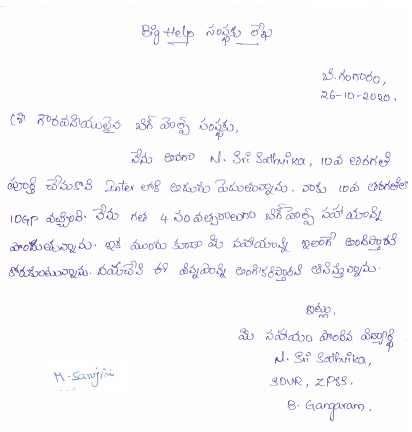 Big Help సంస్థకు లేఖ
బి.గంగారం,
26-10-2020.
గౌరవనీయులైన బిగ్ హెల్ప్ సంస్థకు,
నేను అనగా N. Sri Sathvika, 10వ తరగతి
పూర్తి చేసుకొని Inter లోకి అడుగు పెడుతున్నాను. నాకు 10వ తరగతిలో
10GP వచ్చింది. నేను గత 4 సంవత్సరాలుగా బిగ్ హెల్ప్ సహాయాన్ని
పొందుతున్నాను. ఇక ముందు కూడా మీ సహాయాన్ని ఇలాగే అందిస్తారని
కోరుకుంటున్నాను. దయచేసి ఈ విన్నపాన్ని అంగీకరిస్తారని ఆశిస్తున్నాను.
ఇట్లు,
మీ సహాయం పొందిన విద్యార్థి
N. Sri Sathvika,
ZPSS.
B. Gangaram.
M. Sarojini